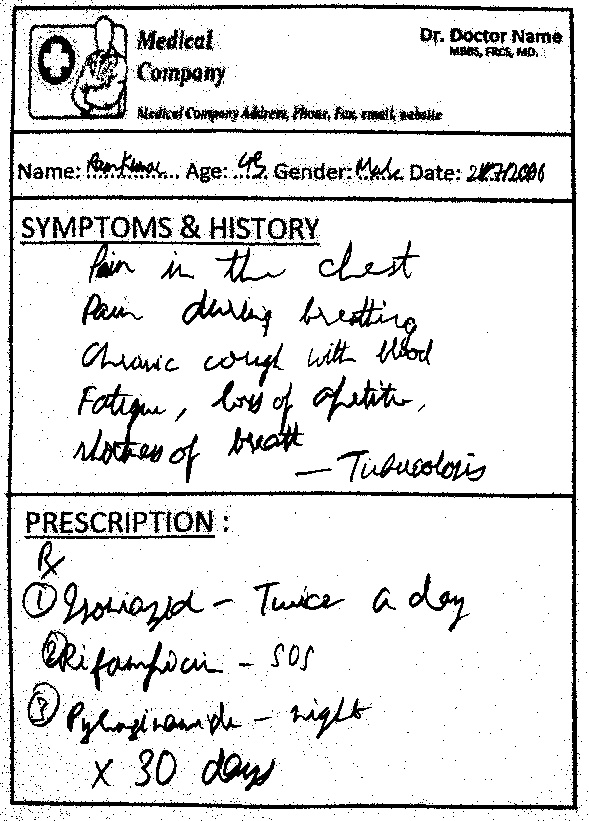 Medical
Company
Dr. Doctor Name
MBBS, FRCS, MD.
Medical Company Address, Phone, Fax, email, website
Name: Ram Kumar Age: 43 Gender: Male Date: /2006
SYMPTOMS & HISTORY
Pain in the chest
Pain during breathing
Chronic cough with blood
Fatigue, loss of apetite,
shortness of breath
— Tuberculosis
PRESCRIPTION :
Rx
① Isoniazid - Twice a day
② Rifampicin - SOS
③ Pyrazinamide - night
x 30 days